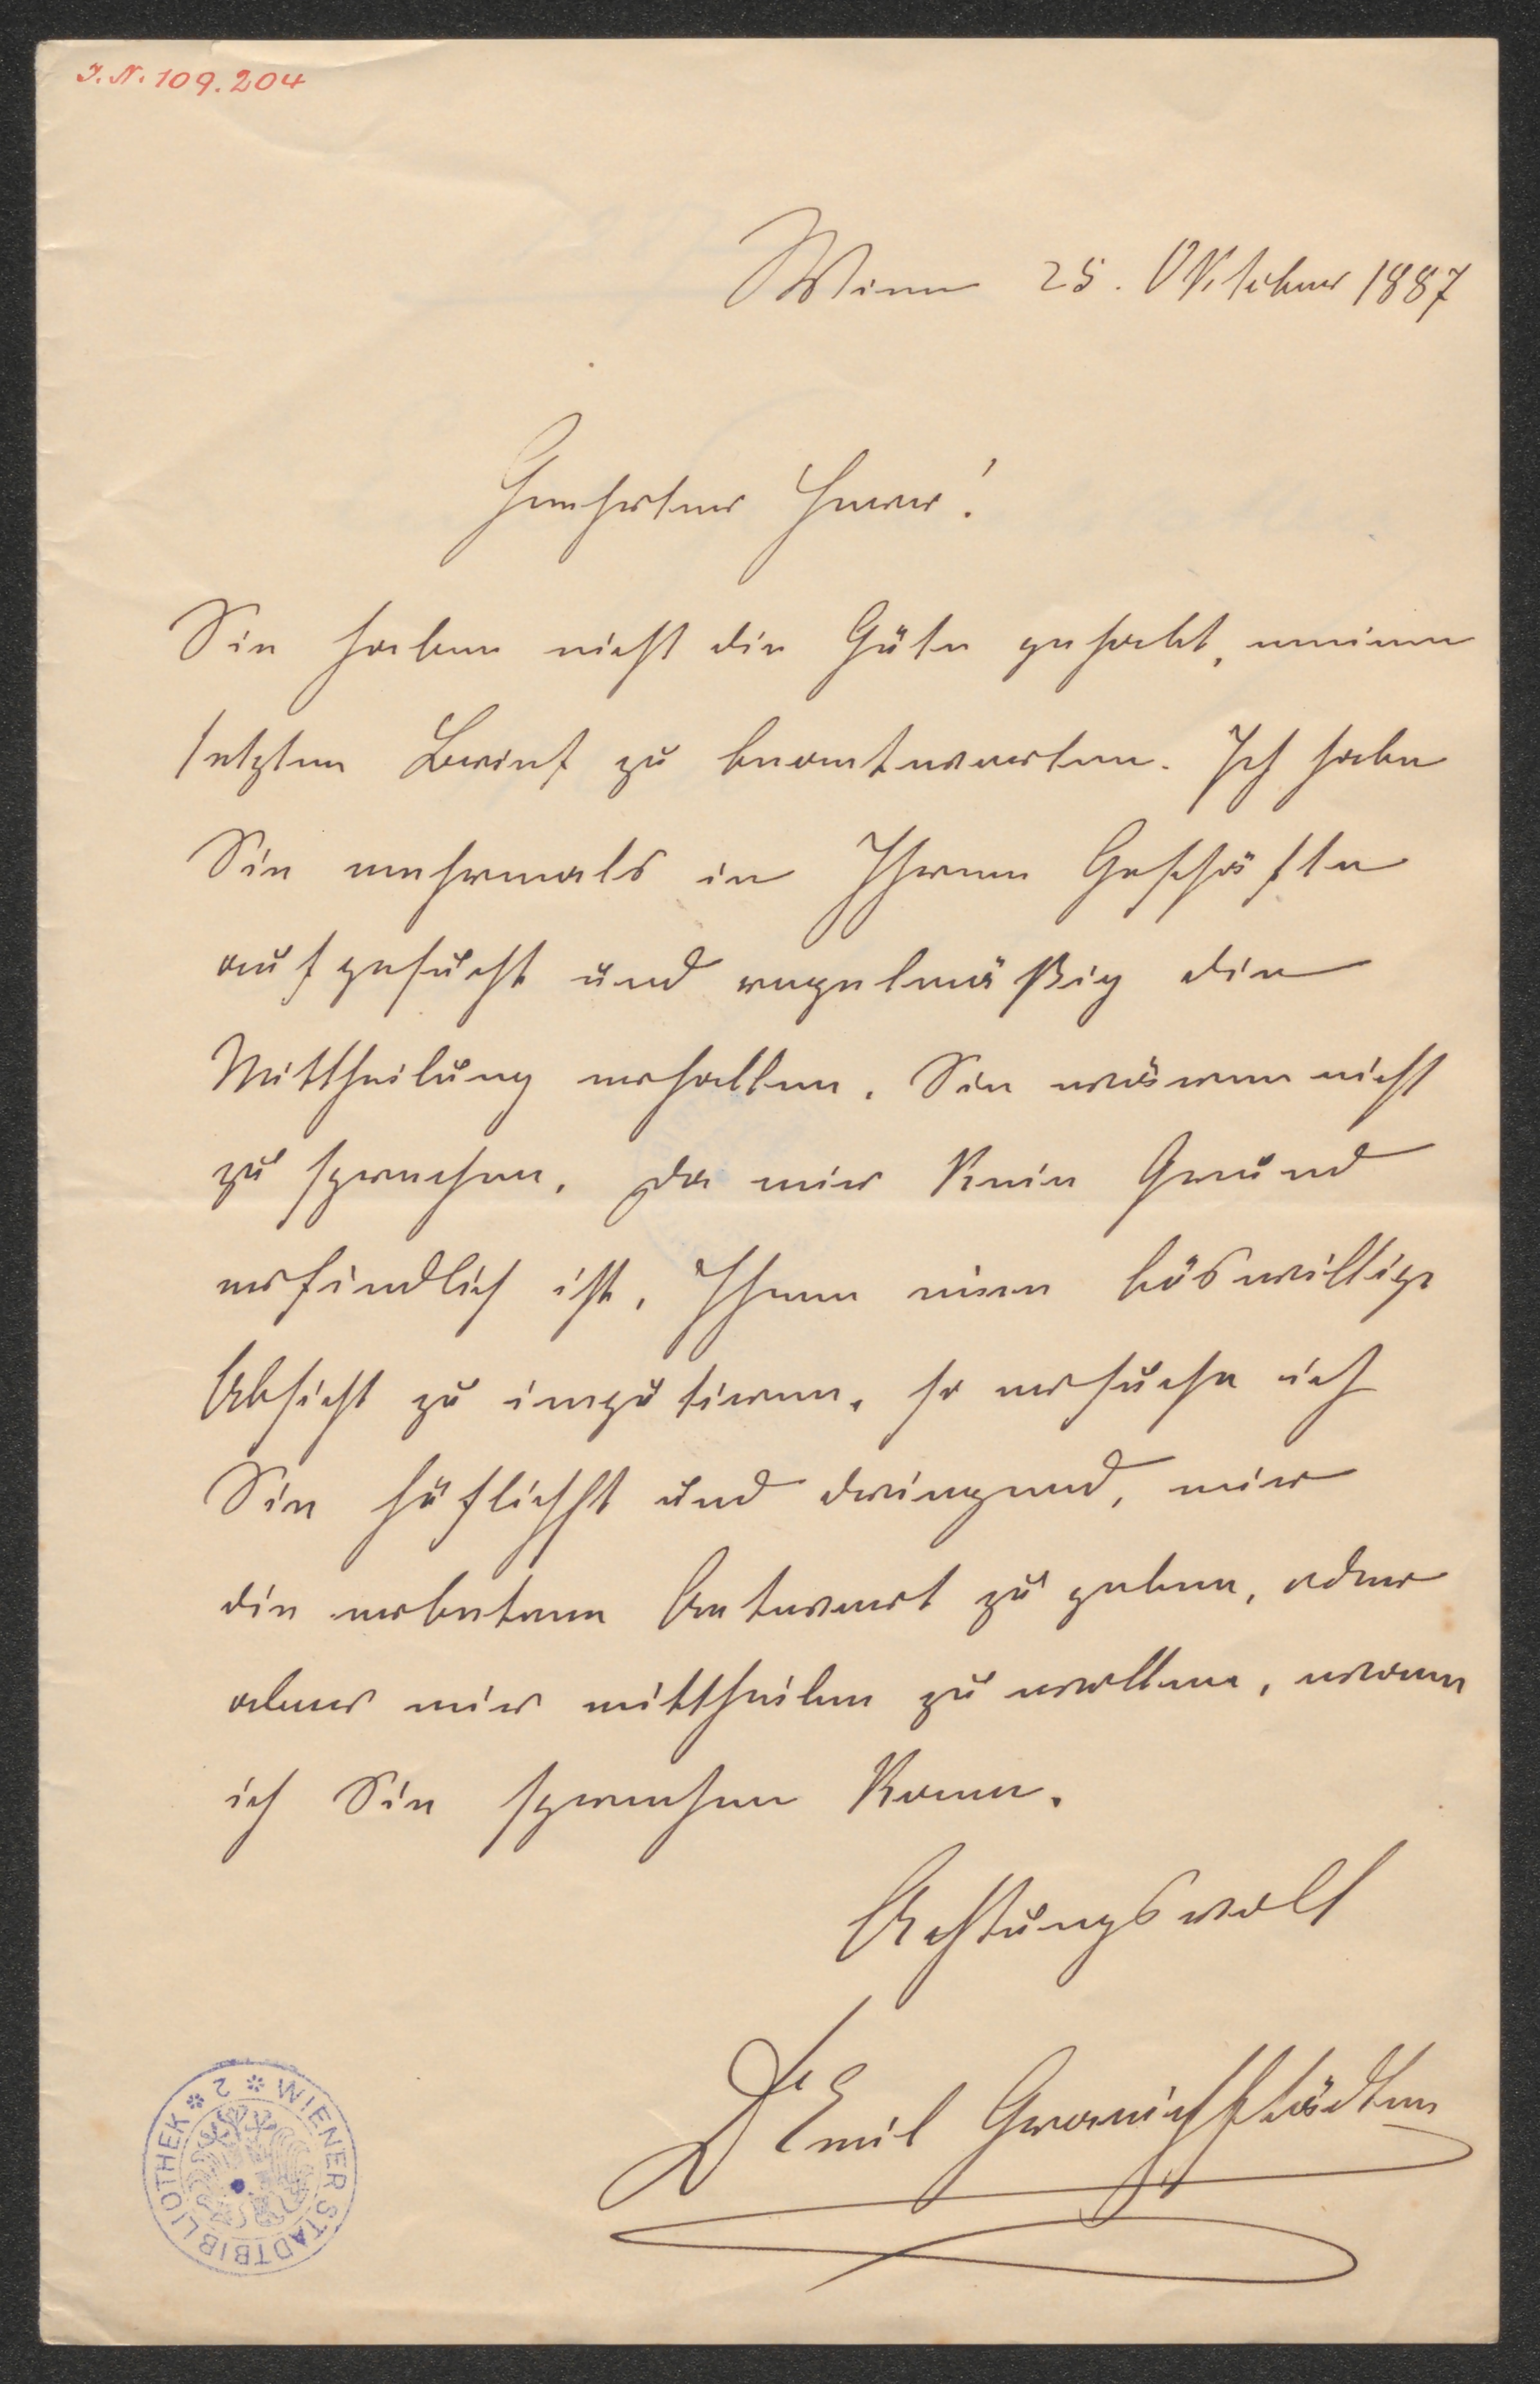 I.N. 109.204
Wien 25. Oktober 1887
Geehrter Herr!
Sie haben nicht die Güte gehabt, meinen
letzten Brief zu beantworten. Ich habe
Sie mehrmals in Ihrem Geschäfte
aufgesucht und regelmäßig die
Mittheilung erhalten, Sie wären nicht
zu sprechen. Da mir kein Grund
erfindlich ist, Ihnen eine böswillige
Absicht zu imputieren, so ersuche ich
Sie höflichst und dringend, mir
die erbetene Antwort zu geben, oder
aber mir mittheilen zu wollen, wann
ich Sie sprechen kann.
Achtungsvoll
Dr Emil Granichstädten
WIENER STADTBIBLIOTHEK * 2 *